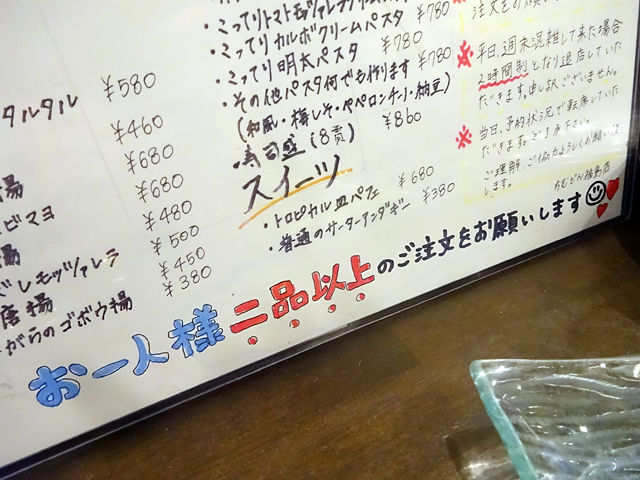 ¥580
タルタル
¥460
¥680
¥680
¥480
¥500
¥450
¥380
ビマヨ
モッツァレラ
唐揚
がらのゴボウ揚
・こってりトマトモッツァレラクリーム
・こってりカルボクリームパスタ ¥780
・こってり明太パスタ ¥780
・その他パスタ何でも作ります ¥780
(和風・梅しそ・ペペロンチーノ・納豆)
・寿司盛(8貫) ¥860
スイーツ
・トロピカル皿パフェ ¥680
・普通のサーターアンダギー ¥380
※平日、週末混雑して来た場合
2時間制となり退店していた
だきます。申し訳ございません。
※当日、予約状況で転席していた
だきます。ご了承下さい。
ご理解、ご協力よろしくお願い致
します。
お一人様二品以上のご注文をお願いします